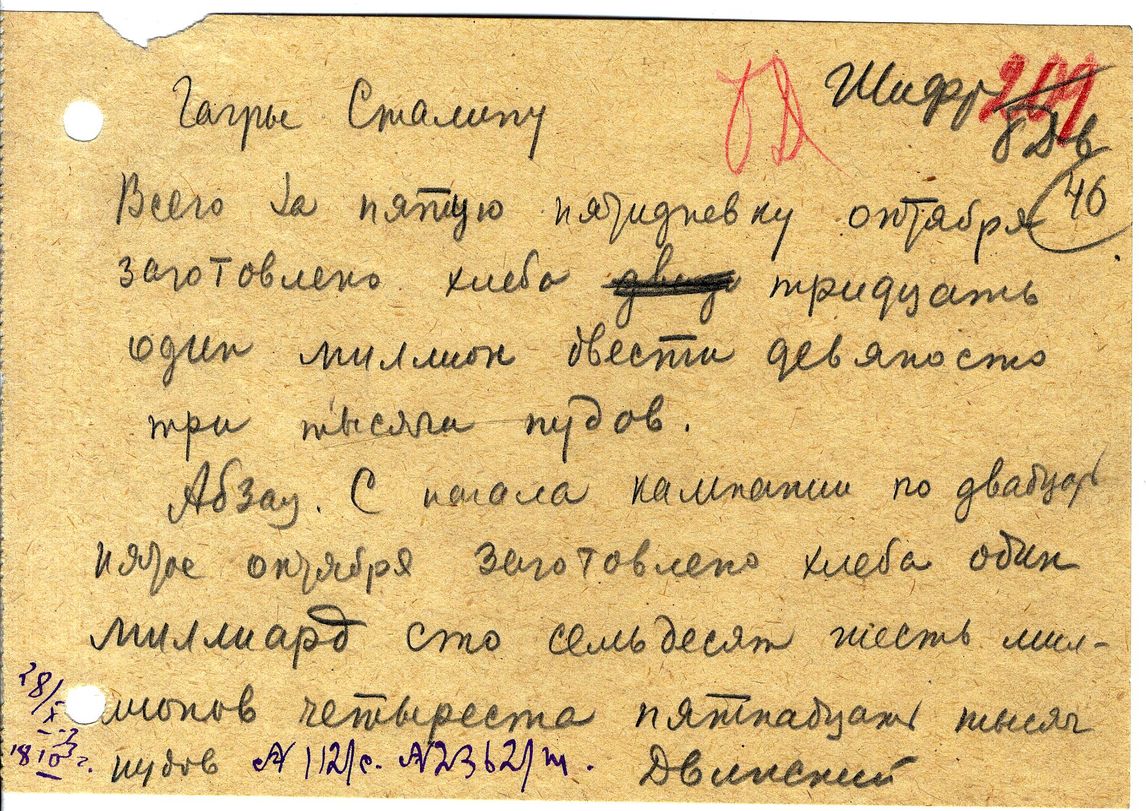 Шифр
Гагры Сталину
46
Всего за пятую пятидневку октября
заготовлено хлеба тридцать
один миллион двести девяносто
три тысячи пудов.
Абзац. С начала кампании по двадцать
пятое октября заготовлено хлеба один
миллиард сто семьдесят шесть мил-
лионов четыреста пятнадцать тысяч
пудов N 112/с. N 2362/ш. Двинский
28/X